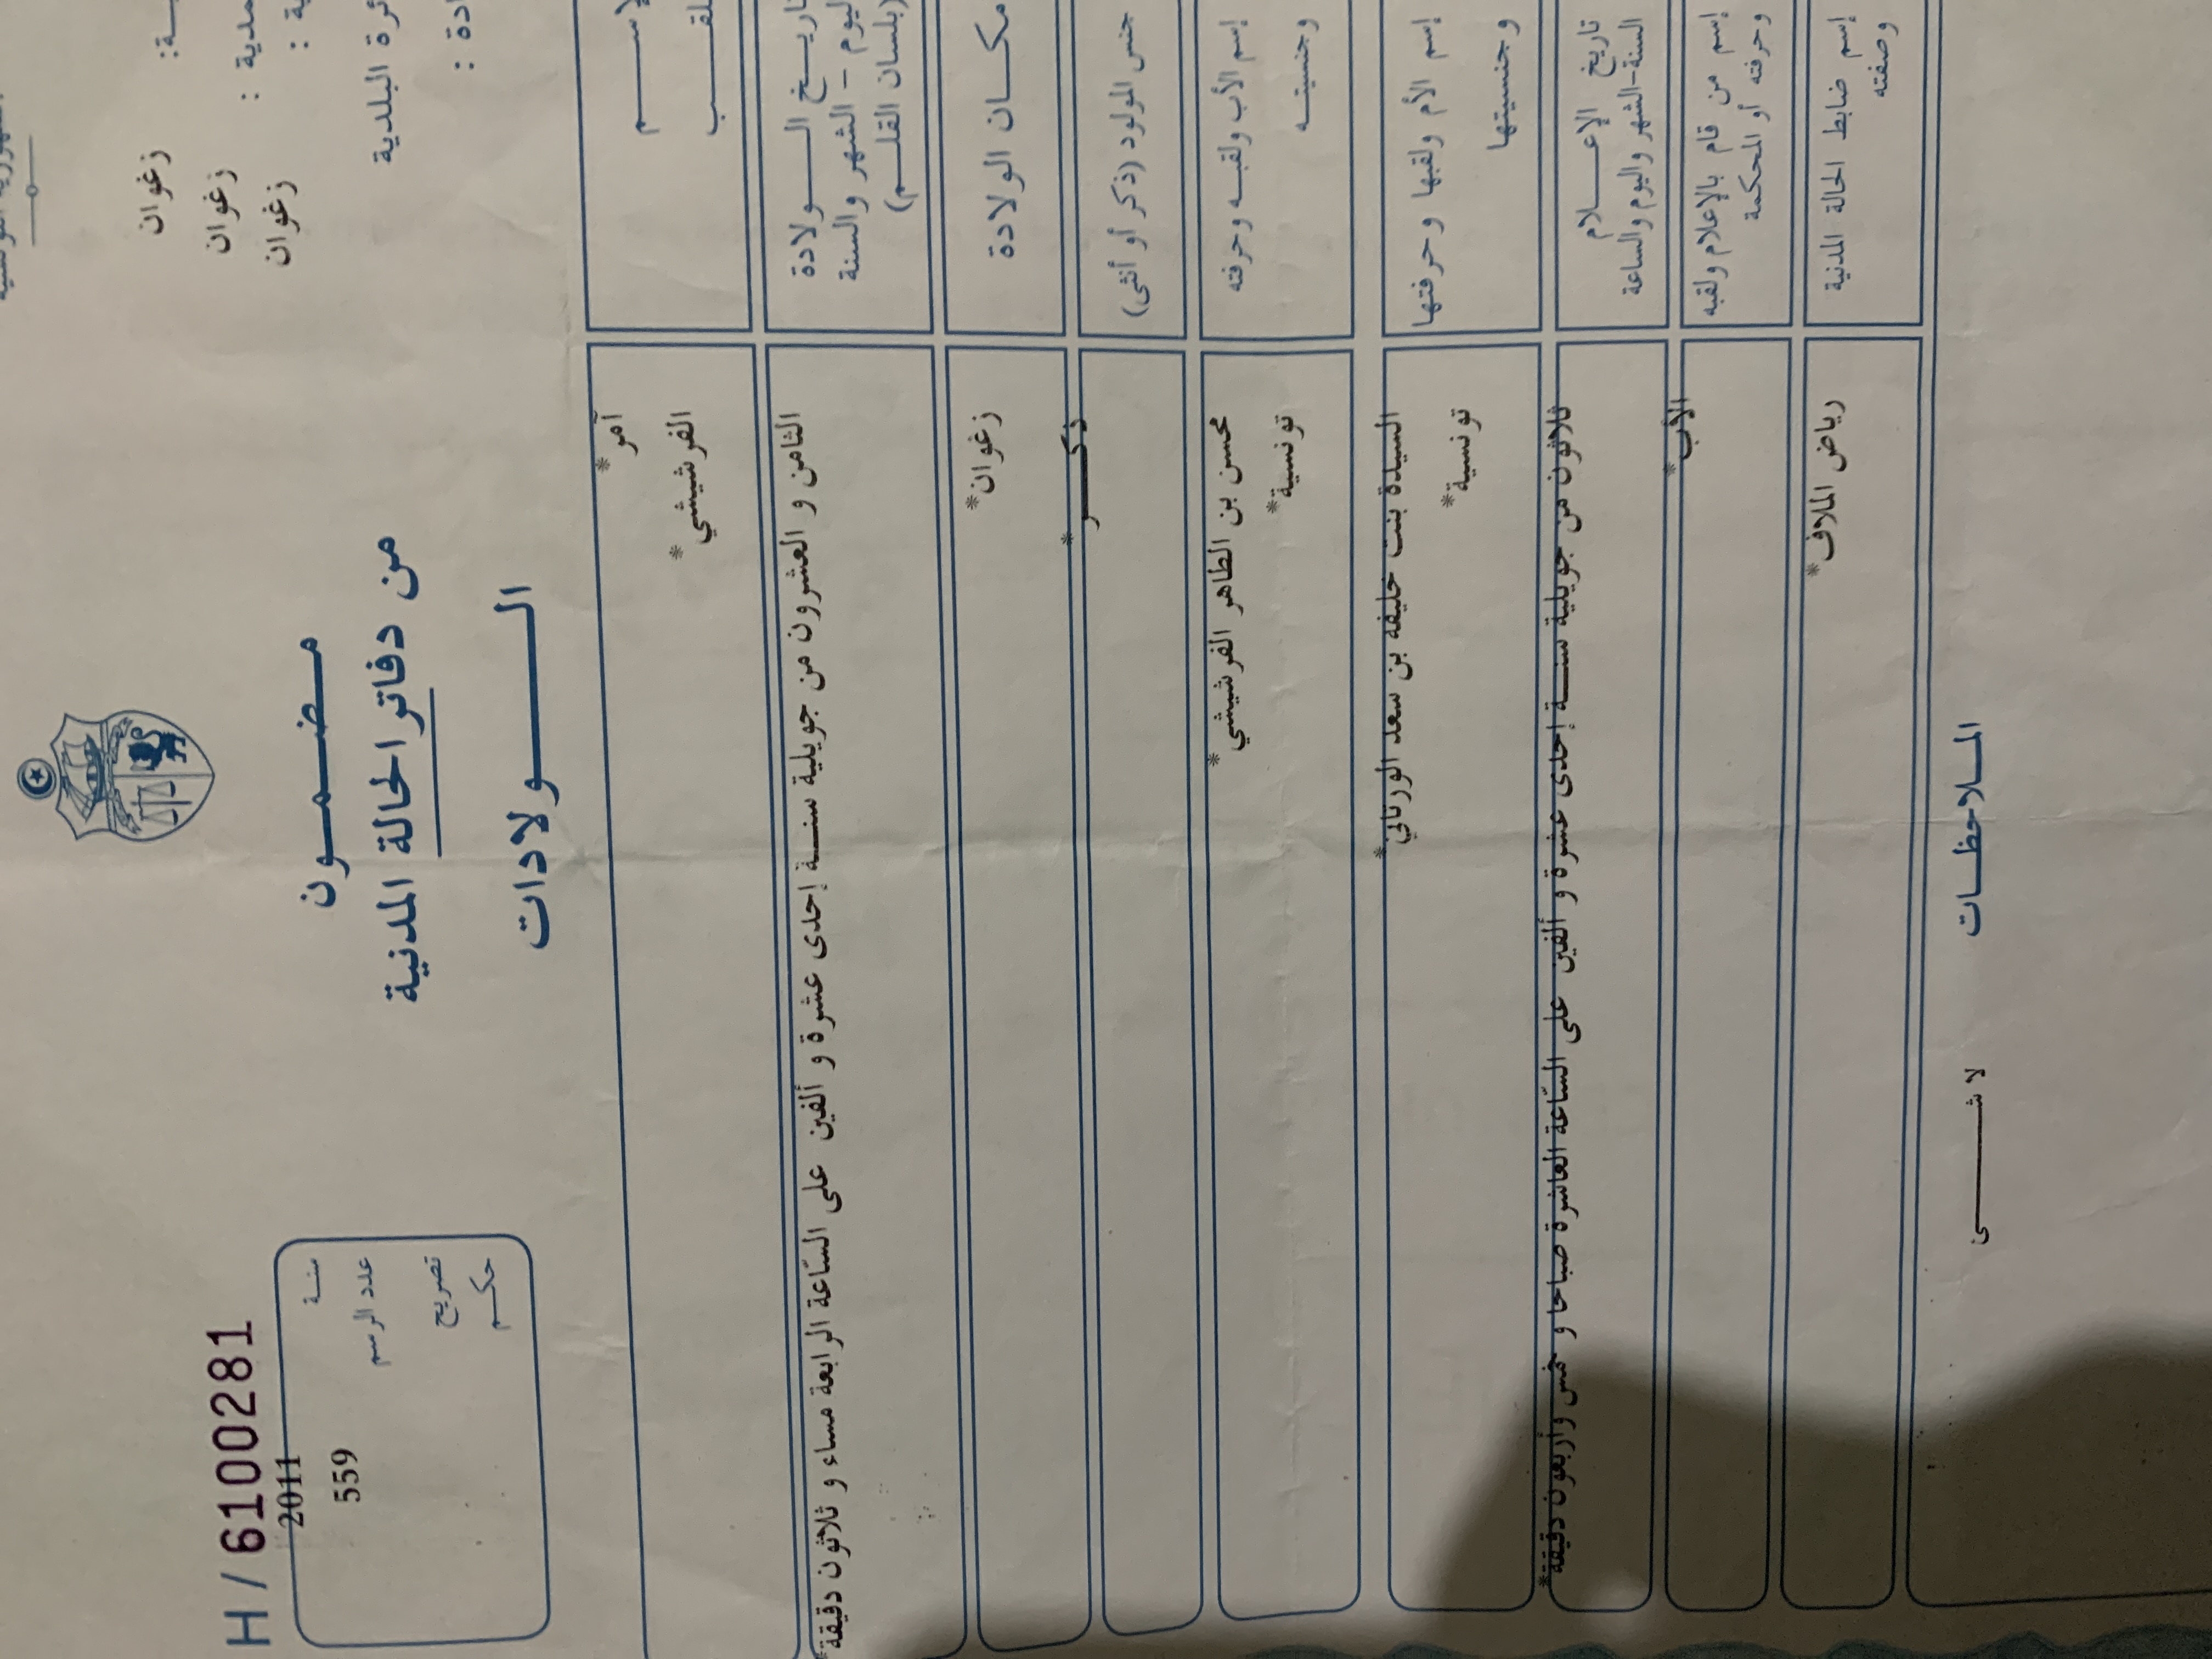 زغوان
زغوان
زغوان
H / 6100281
2011
سنة
559
عدد الرسم
تصريح
حكم
مضمون
من دفاتر الحالة المدنية
الولادات
آمر*
الفرشيشي*
تاريخ الولادة
اليوم - الشهر والسنة
(بلسان القلم)
الثامن و العشرون من جويلية سنة إحدى عشرة و ألفين على الساعة الرابعة مساء و ثلاثون دقيقة*
مكان الولادة
زغوان*
جنس المولود (ذكر أو أنثى)
ذكر*
إسم الأب ولقبه وحرفته
وجنسيته
محسن بن الطاهر الفرشيشي*
تونسية*
إسم الأم ولقبها وحرفتها
وجنسيتها
السيدة بنت خليفه بن سعد الورتاني*
تونسية*
تاريخ الإعلام
السنة-الشهر واليوم والساعة
ثلاثون من جويلية سنة إحدى عشرة و ألفين على الساعة العاشرة صباحا و خمس وأربعون دقيقة*
إسم من قام بالإعلام ولقبه
وحرفته أو المحكمة
الأب*
إسم ضابط الحالة المدنية
وصفته
رياض الملاف*
الملاحظات
لا شى